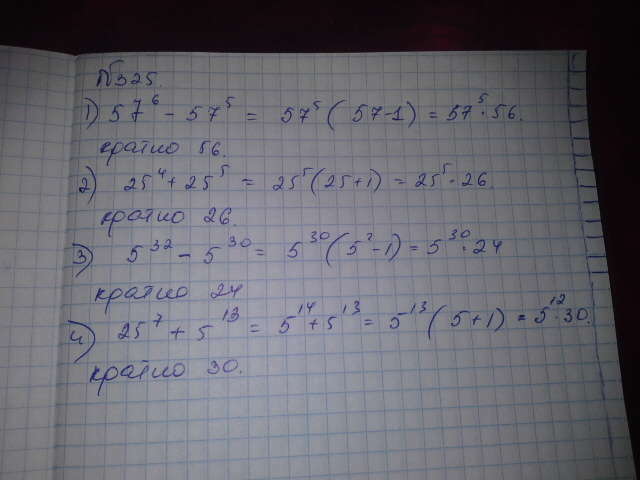 №325.
1) 57⁶ - 57⁵ = 57⁵(57-1) = 57⁵·56.
кратно 56.
2) 25⁴ + 25⁵ = 25⁵(25+1) = 25⁵·26
кратно 26.
3) 5³² - 5³⁰ = 5³⁰(5²-1) = 5³⁰·24
кратно 24
4) 25⁷ + 5¹³ = 5¹⁴ + 5¹³ = 5¹³(5+1) = 5¹²·30.
кратно 30.